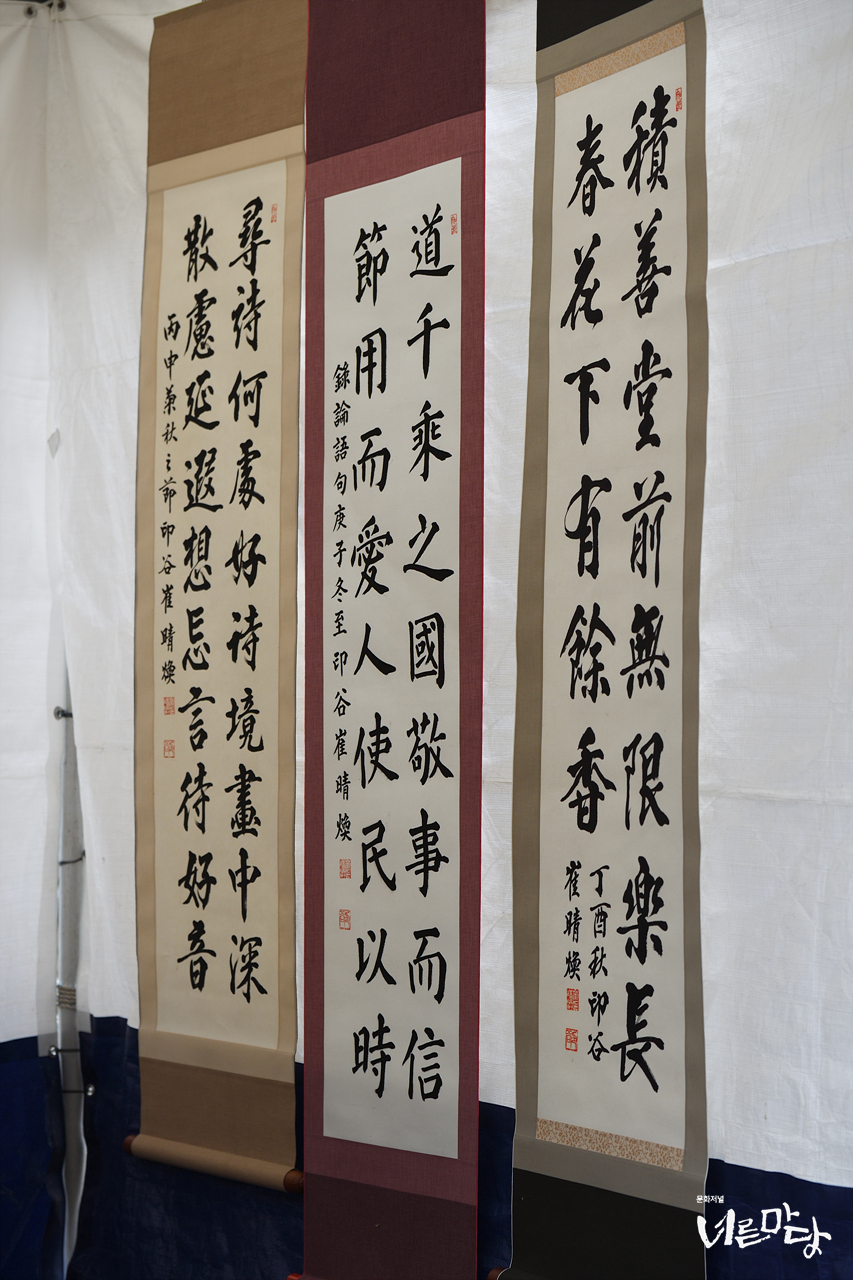 積善堂前無限樂長
春花下有餘香
丁酉秋印谷
崔晴煥
道千乘之國敬事而信
節用而愛人使民以時
錄論語句庚子冬至印谷崔晴煥
尋詩何處好詩境畫中深
散慮延遐想忘言待好音
丙申菊秋之節印谷崔晴煥
문화저널
너른마당